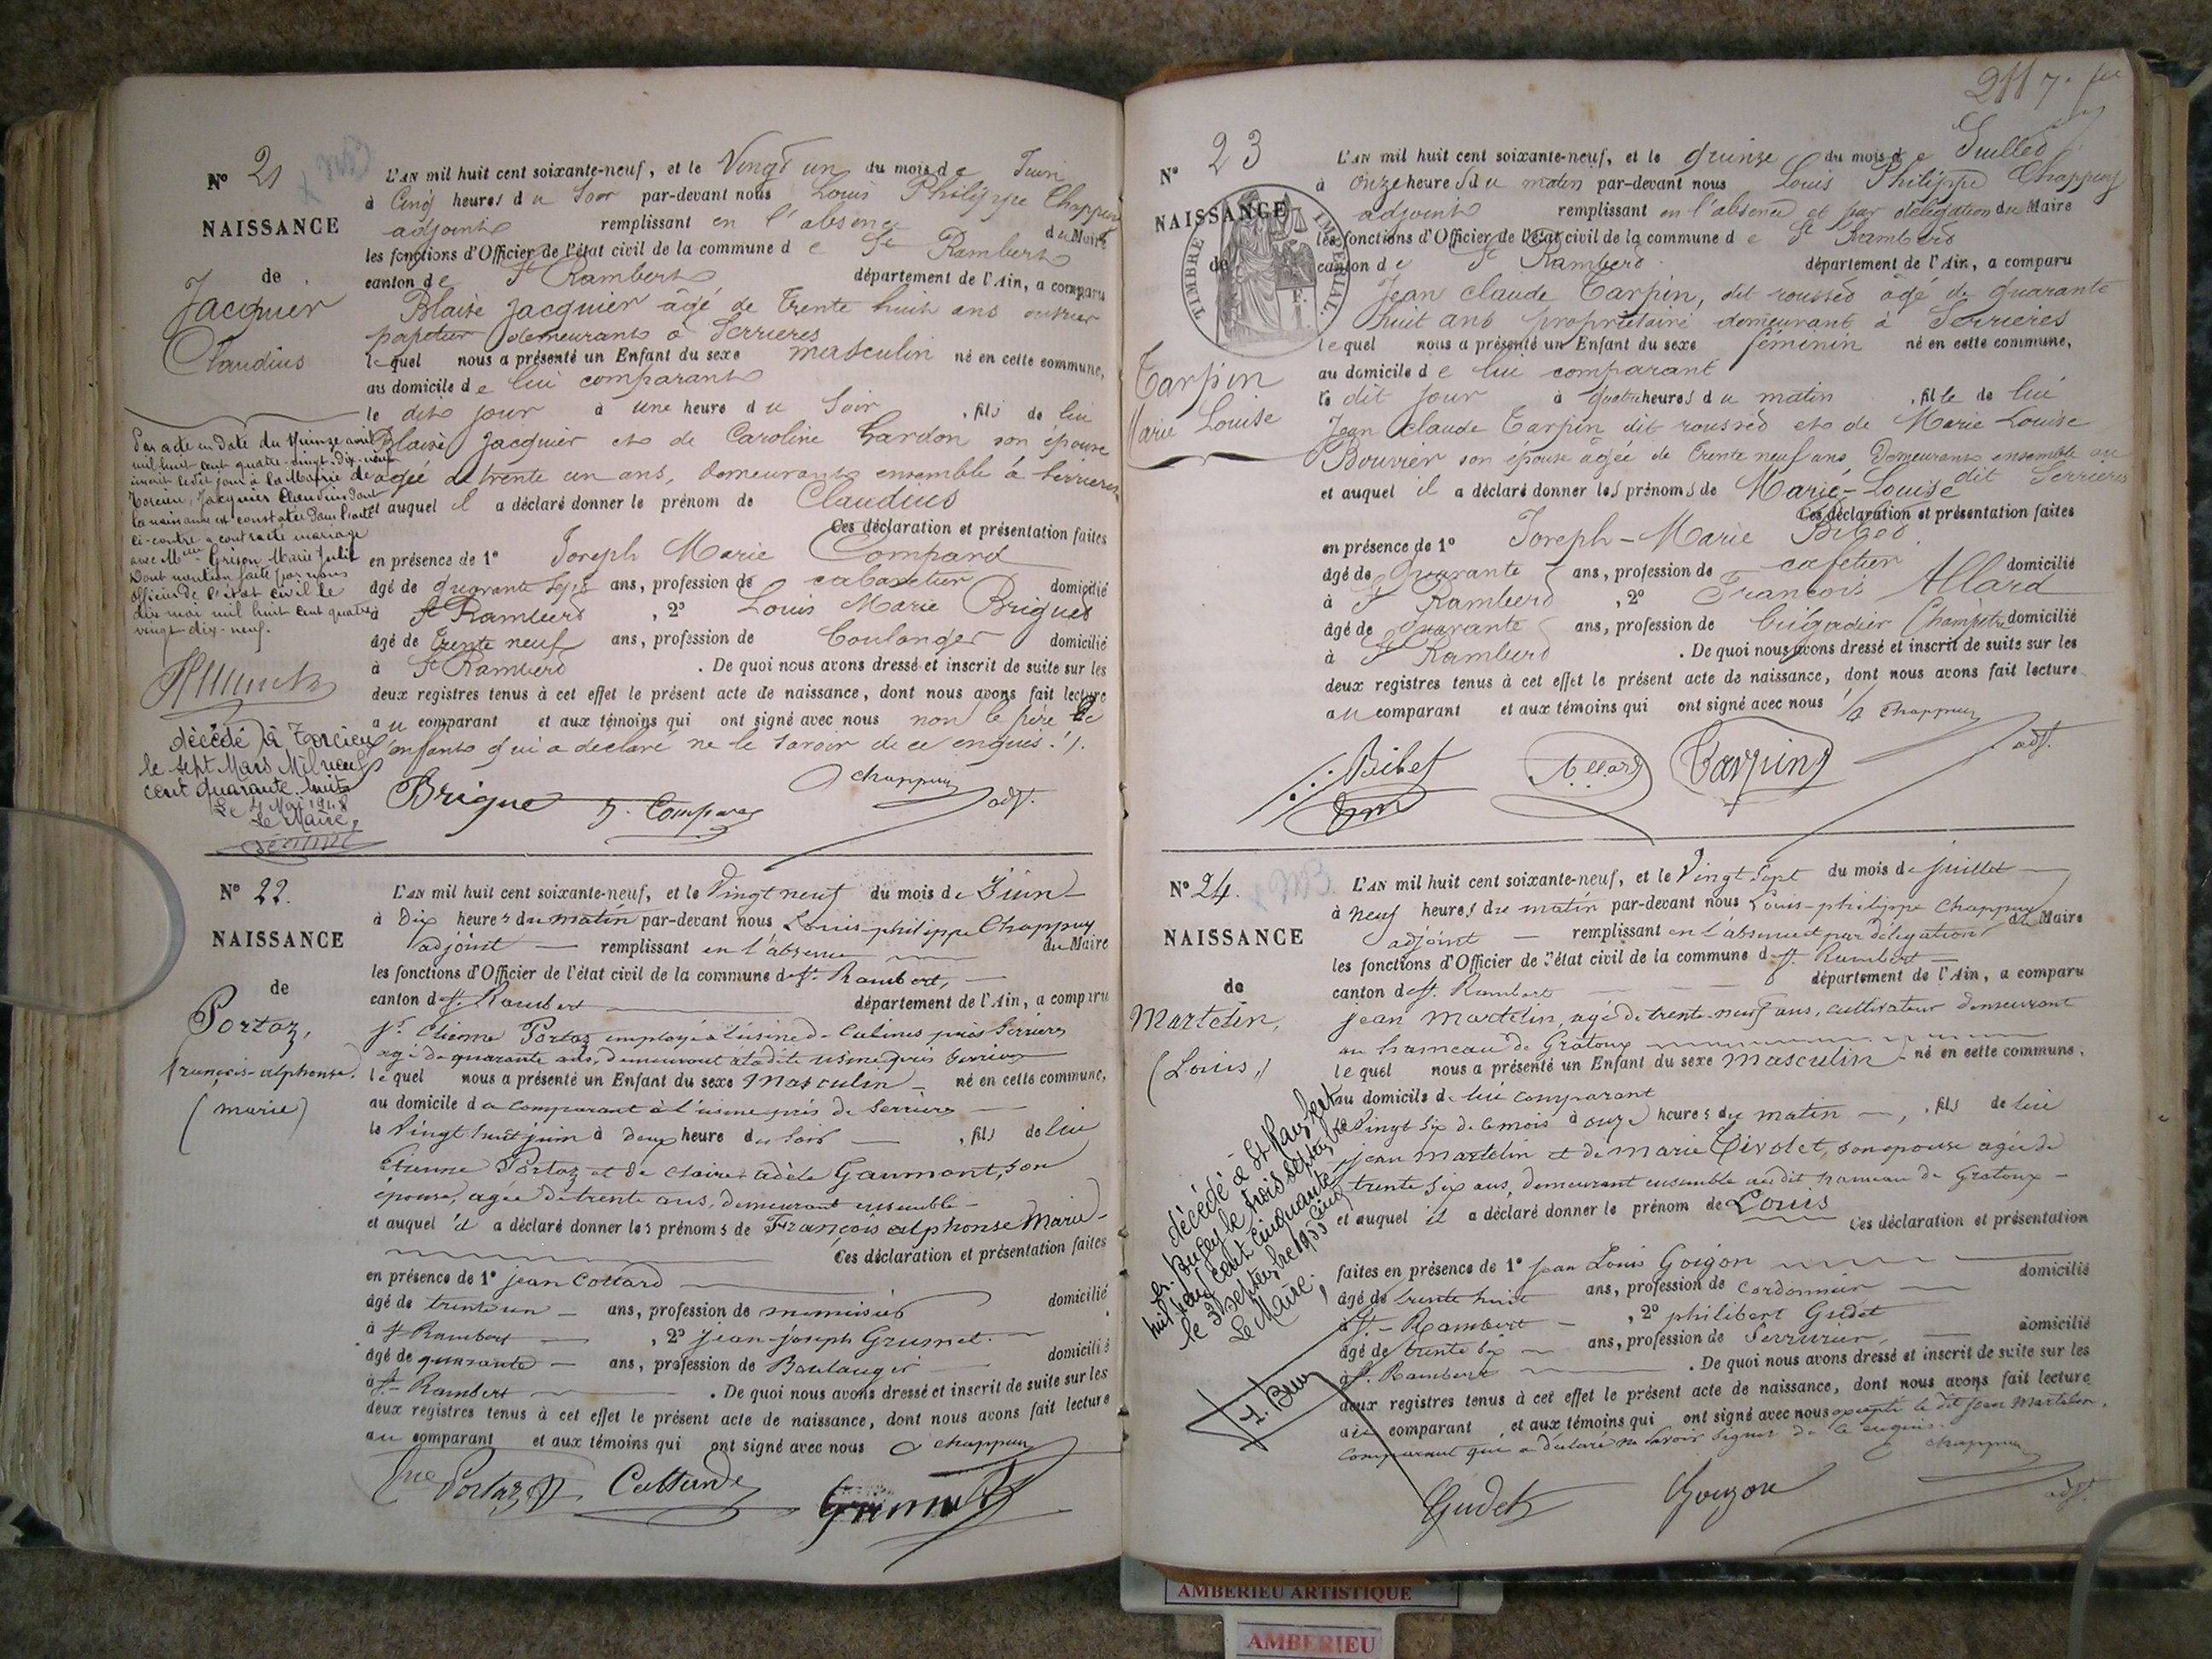 N° 21
NAISSANCE
de
Jacquier
Claudius
L'AN mil huit cent soixante-neuf, et le Vingt un du mois de Juin
à Cinq heures du Soir par-devant nous Louis Philippe Chappuy
adjoint remplissant en l'absence du Maire
les fonctions d'Officier de l'état civil de la commune de St Rambert
canton de St Rambert département de l'Ain, a comparu
Blaise Jacquier âgé de trente huit ans ouvrier
papetier demeurant à Serrieres
lequel nous a présenté un Enfant du sexe masculin né en cette commune,
au domicile de lui comparant
le dit jour à une heure du Soir, fils de lui
Blaise Jacquier et de Caroline Gardon son épouse
agée de trente un ans, demeurant ensemble à Serrieres
et auquel il a déclaré donner le prénom de Claudius
Ces déclaration et présentation faites
en présence de 1° Joseph Marie Compard
âgé de quarante sept ans, profession de cabaretier domicilié
à St Rambert, 2° Louis Marie Briguet
âgé de trente neuf ans, profession de boulanger domicilié
à St Rambert. De quoi nous avons dressé et inscrit de suite sur les
deux registres tenus à cet effet le présent acte de naissance, dont nous avons fait lecture
au comparant et aux témoins qui ont signé avec nous non le père de
l'enfant qui a déclaré ne le savoir de ce enquis.
Brigue J. Compard Chappuy adj.
Par acte en date du quinze avril
mil huit cent quatre-vingt-dix-neuf
inscrit ledit jour à la Mairie de
Torcieu, Jacquier Claudius dont
la naissance est constatée dans l'acte
ci-contre a contracté mariage
avec Melle Grison Marie Julie
Dont mention faite par nous
officier de l'état civil le
dix mai mil huit cent quatre
vingt-dix-neuf.
décédé à Torcieu
le sept Mars Mil neuf
cent quarante-huit
Le Maire,
N° 22.
NAISSANCE
de
Portaz,
françois-alphonse.
(marie)
L'AN mil huit cent soixante-neuf, et le Vingt neuf du mois de Juin
à Dix heures du matin par-devant nous Louis-philippe Chappuy
adjoint remplissant en l'absence du Maire
les fonctions d'Officier de l'état civil de la commune de St. Rambert,
canton de St. Rambert département de l'Ain, a comparu
Etienne Portaz employé à l'usine de près Serrieres
agé de quarante ans, demeurant usine près Serrieres
lequel nous a présenté un Enfant du sexe Masculin né en cette commune,
au domicile du comparant à l'usine près de Serrières
le Vingt huit juin à deux heure du Soir, fils de lui
Etienne Portaz et de Claire adèle Gaumont, son
épouse, agée de trente ans, demeurant ensemble
et auquel il a déclaré donner les prénoms de François alphonse Marie
Ces déclaration et présentation faites
en présence de 1° jean Cottard
âgé de trente un ans, profession de menuisier domicilié
à St Rambert, 2° jean-joseph Grumet.
âgé de quarante ans, profession de Boulanger domicilié
à St. Rambert. De quoi nous avons dressé et inscrit de suite sur les
deux registres tenus à cet effet le présent acte de naissance, dont nous avons fait lecture
au comparant et aux témoins qui ont signé avec nous Chappuy
Portaz Grumet
N° 23
NAISSANCE
de
TIMBRE IMPERIAL.
Tarpin
Marie Louise
L'AN mil huit cent soixante-neuf, et le quinze du mois de Juillet
à onze heures du matin par-devant nous Louis Philippe Chappuy
adjoint remplissant en l'absence et par délégation du Maire
les fonctions d'Officier de l'état civil de la commune de St Rambert
canton de St Rambert département de l'Ain, a comparu
Jean Claude Tarpin, dit rousset âgé de quarante
huit ans propriétaire demeurant à Serrieres
lequel nous a présenté un Enfant du sexe féminin né en cette commune,
au domicile de lui comparant
le dit jour à quatre heures du matin, fille de lui
Jean Claude Tarpin dit rousset et de Marie Louise
Bouvier son épouse âgée de trente neuf ans demeurant ensemble au
dit Serrieres
et auquel il a déclaré donner les prénoms de Marie-Louise
Ces déclaration et présentation faites
en présence de 1° Joseph-Marie Bibet
âgé de quarante ans, profession de cafetier domicilié
à St Rambert, 2° François Allard
âgé de quarante ans, profession de brigadier Champêtre domicilié
à St Rambert. De quoi nous avons dressé et inscrit de suite sur les
deux registres tenus à cet effet le présent acte de naissance, dont nous avons fait lecture
au comparant et aux témoins qui ont signé avec nous Chappuy
Bibet Allard Tarpin adj.
N° 24.
NAISSANCE
de
Martelin,
(Louis,)
L'AN mil huit cent soixante-neuf, et le Vingt Sept du mois de juillet
à neuf heures du matin par-devant nous Louis-philippe Chappuy
adjoint remplissant en l'absence et par délégation du Maire
les fonctions d'Officier de l'état civil de la commune de St. Rambert
canton de St. Rambert département de l'Ain, a comparu
jean Martelin, agé de trente-neuf ans, cultivateur demeurant
au hameau de Gratoux
lequel nous a présenté un Enfant du sexe Masculin né en cette commune,
au domicile de lui comparant
le Vingt Six de ce mois à onze heures du matin, fils de lui
jean Martelin et de marie Tivolet, son épouse agée de
trente six ans, demeurant ensemble audit hameau de Gratoux
et auquel il a déclaré donner le prénom de Louis
Ces déclaration et présentation
faites en présence de 1° jean Louis Goigon
âgé de trente huit ans, profession de cordonnier domicilié
à St.-Rambert, 2° philibert Gudet
âgé de trente Six ans, profession de Serrurier, domicilié
à St. Rambert. De quoi nous avons dressé et inscrit de suite sur les
deux registres tenus à cet effet le présent acte de naissance, dont nous avons fait lecture
au comparant et aux témoins qui ont signé avec nous excepté le dit jean Martelin,
comparant qui a déclaré ne Savoir Signer de ce enquis. Chappuy
Gudet adj.
décédé à St Rambert
en Bugey le trois septembre
mil neuf cent cinquante cinq
le 3 septembre 1955
Le Maire,
AMBERIEU ARTISTIQUE
AMBERIEU